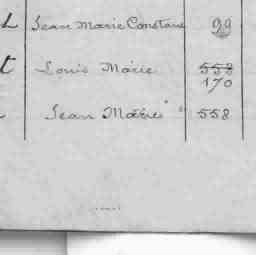 Jean Marie Constant 99
t Louis Marie 558
170
Jean Marie " 558